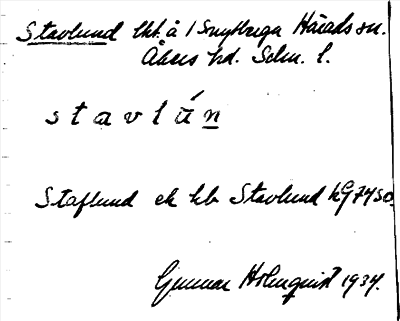 Stavlund lht. å 1 Snytberga Härads sn.
Åkers hd. Sdm. l.
s t a v l ú n
Staflund ek hb Stavlund hG7450.
Gunnar Holmquist 1934.